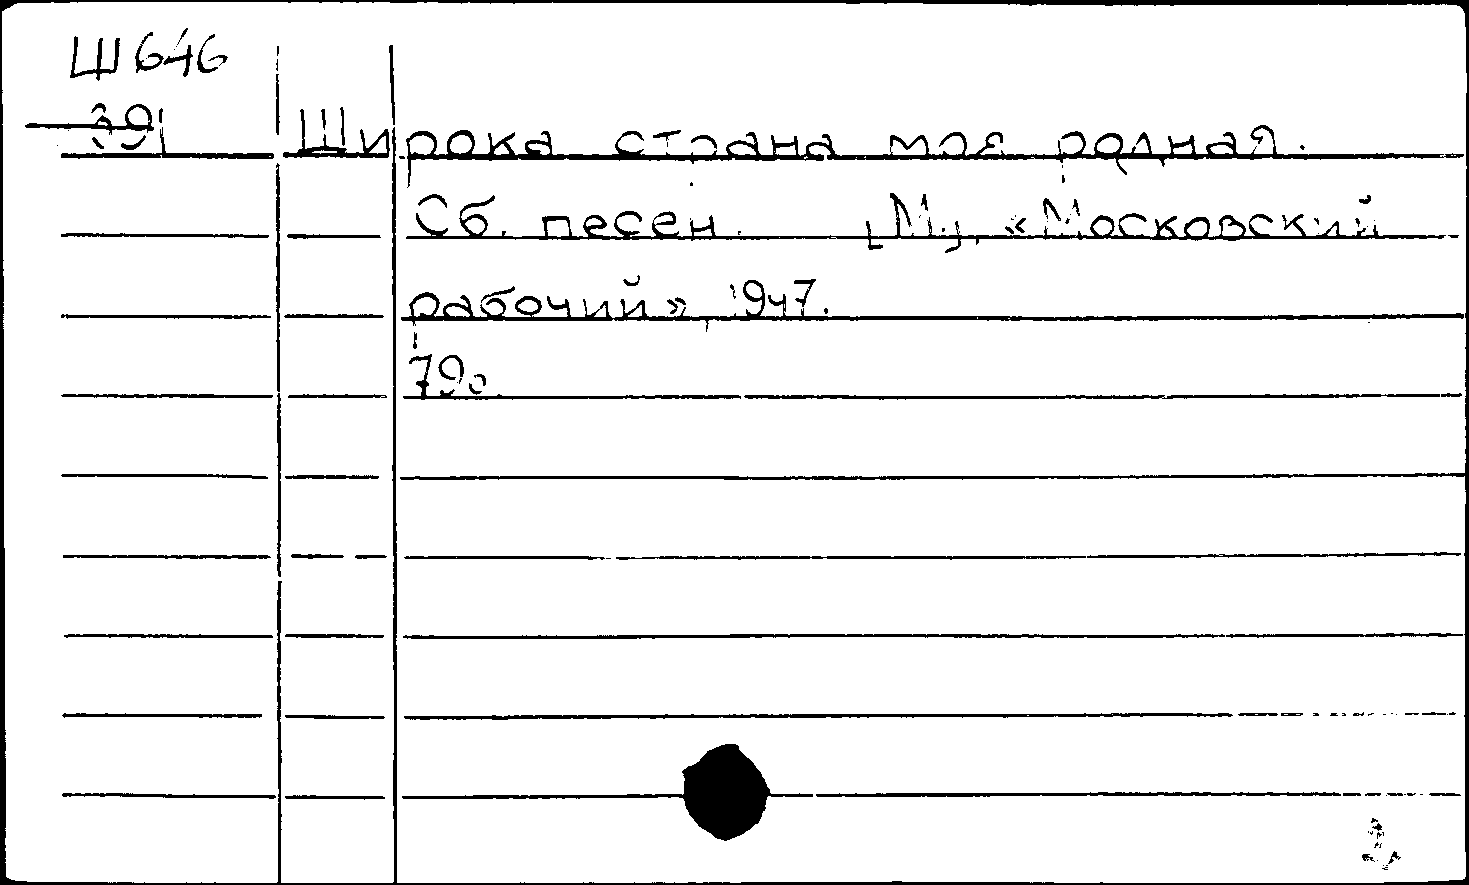 Ш646
391
Широка страна моя родная.
Сб. песен. [М.], «Московский
рабочий», 1947.
79с.